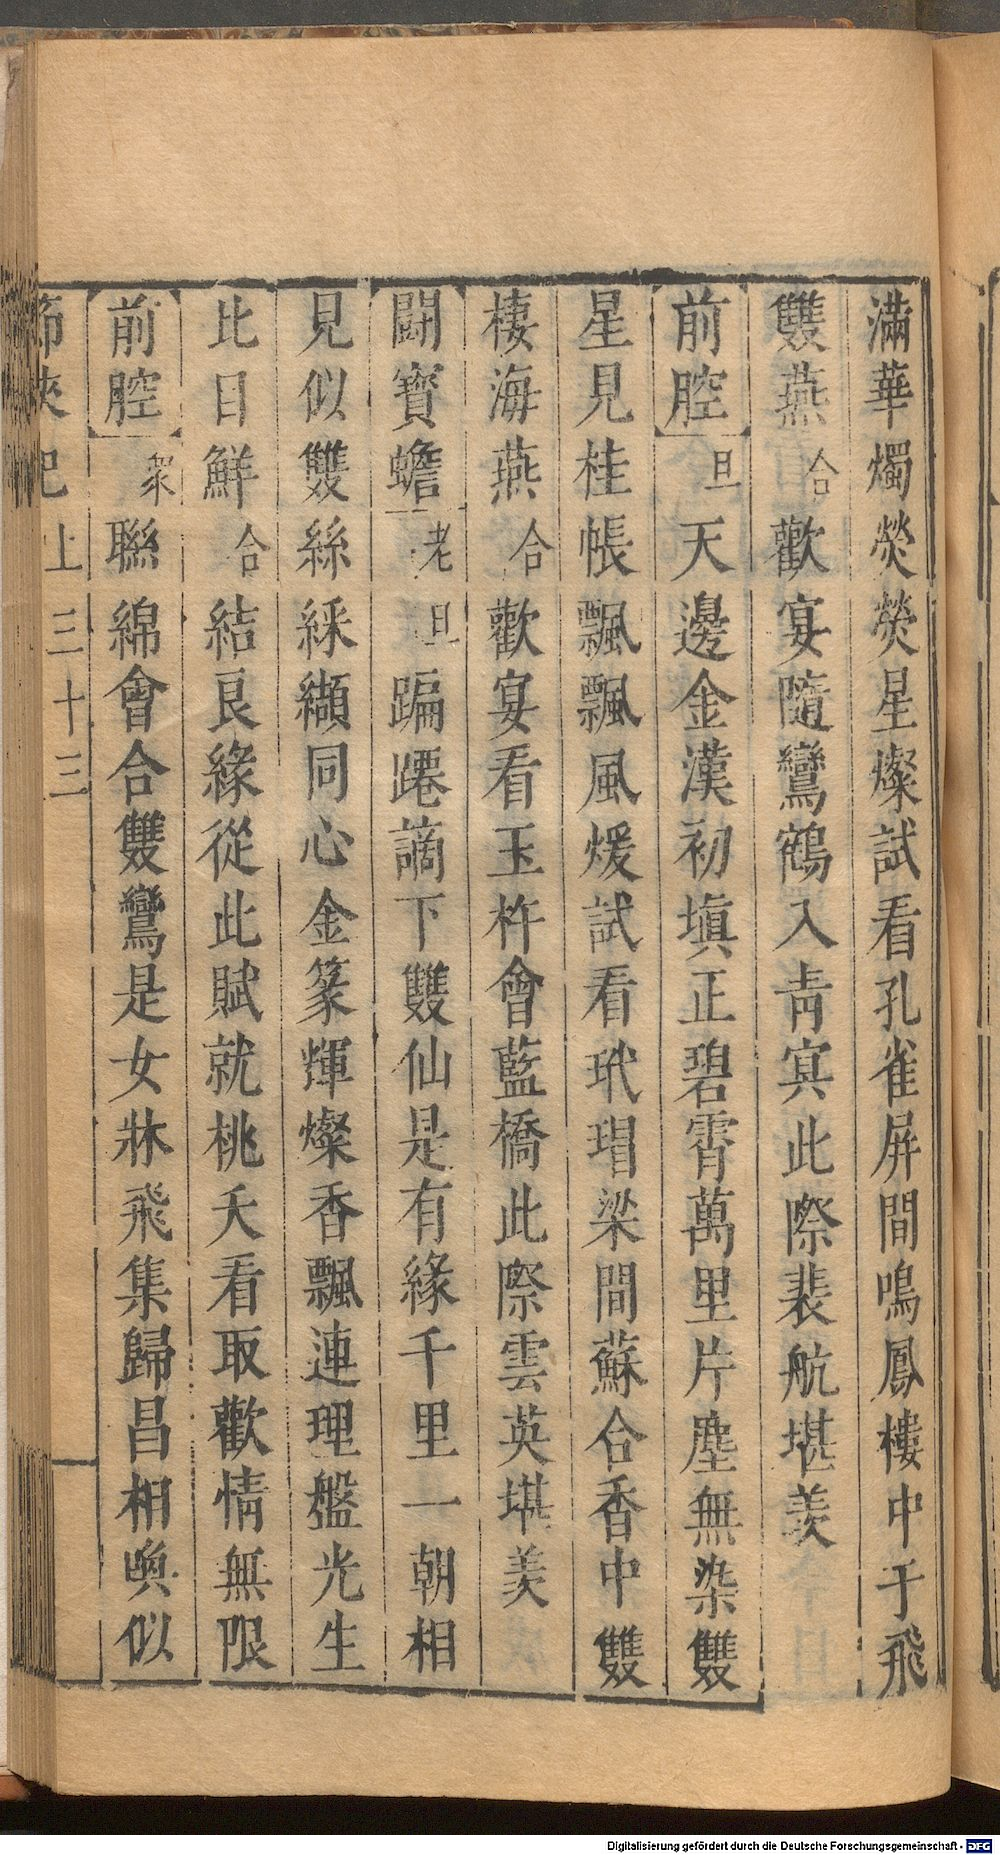 滿華燭熒熒星燦試看孔雀屏間鳴鳳樓中于飛
雙燕合歡宴隨鸞鶴入青㝠此際裴航堪羨
前腔旦天邊金漢初塡正碧霄萬里片塵無染雙
星見桂帳飄飄風煖試看玳瑁梁間蘇合香中雙
棲海燕合歡宴看玉杵會藍橋此際雲英堪羨
闘寳蟾老旦蹁躚謫下雙仙是有緣千里一朝相
見似雙絲綵纈同心金篆輝燦香飄連理盤光生
比目鮮合結良緣從此賦就桃夭看取歡情無限
前腔衆聮綿會合雙鸞是女牀飛集歸昌相喚似
節俠記上三十三
Digitalisierung gefördert durch die Deutsche Forschungsgemeinschaft - DFG